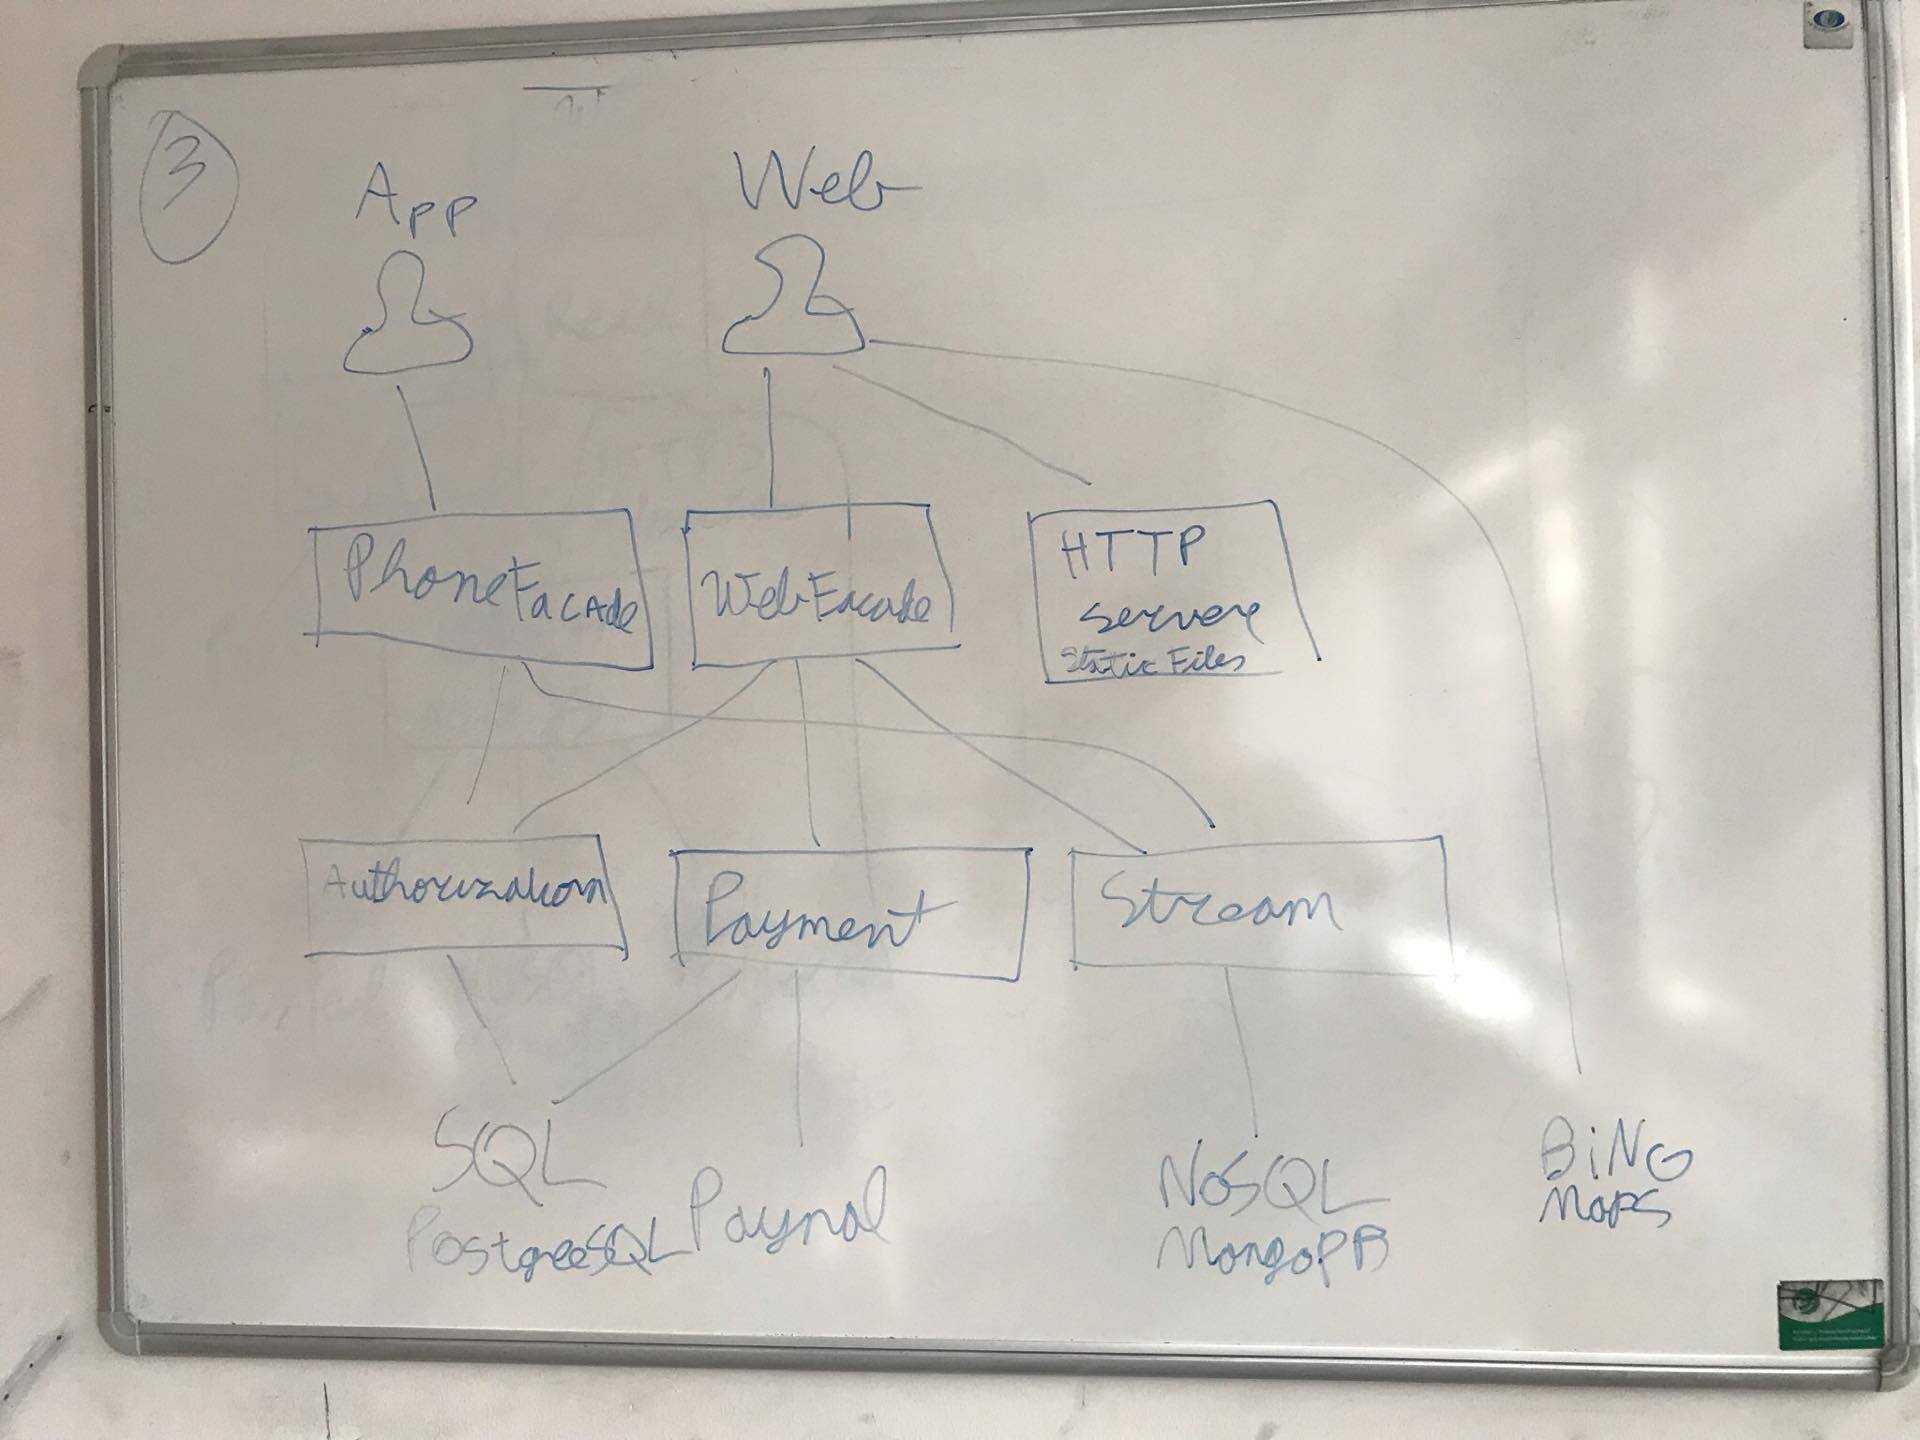 3
App
Web
PhoneFacade
WebFacade
HTTP
Server
Static Files
Authorization
Payment
Stream
SQL
PostgreeSQL
Paynal
NoSQL
MongoDB
BiNG
Maps